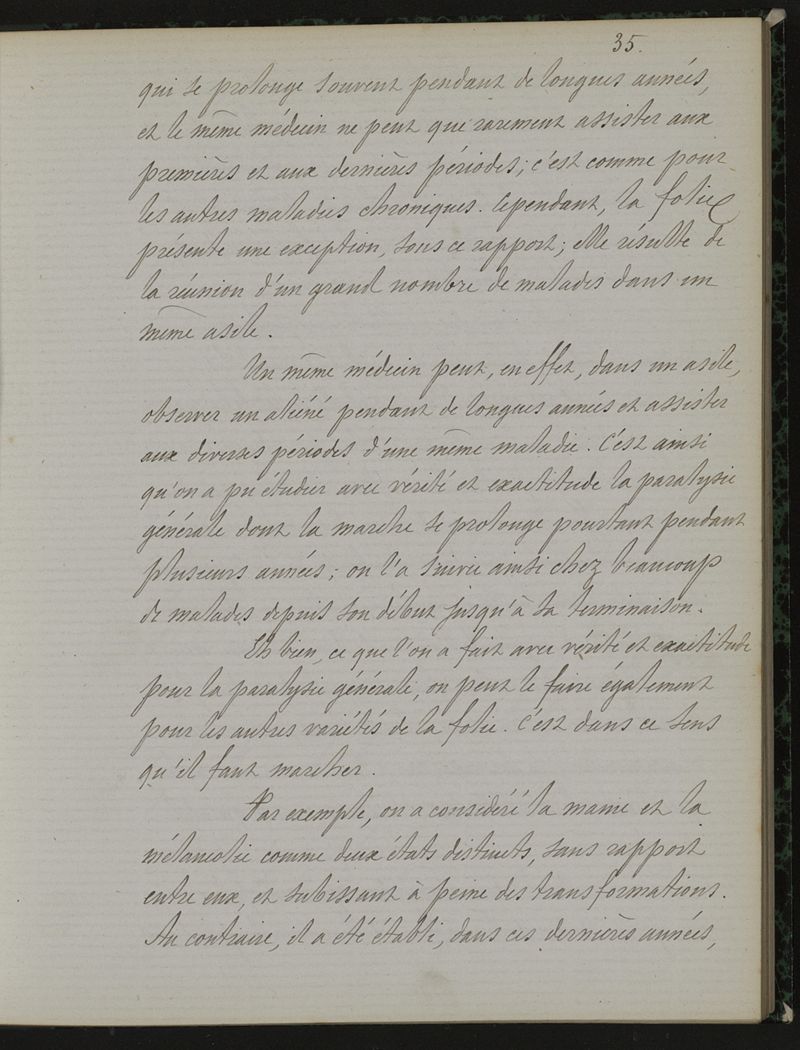 35.
qui se prolonge souvent pendant de longues années,
et le même médecin ne peut que rarement assister aux
premières et aux dernières périodes; c'est comme pour
les autres maladies chroniques. Cependant, la folie
présente une exception, sous ce rapport; elle résulte de
la réunion d'un grand nombre de malades dans un
même asile.
Un même médecin peut, en effet, dans un asile,
observer un aliéné pendant de longues années et assister
aux diverses périodes d'une même maladie. C'est ainsi
qu'on a pu étudier avec vérité et exactitude la paralysie
générale dont la marche se prolonge pourtant pendant
plusieurs années; on l'a suivie ainsi chez beaucoup
de malades depuis son début jusqu'à sa terminaison.
Eh bien, ce que l'on a fait avec vérité et exactitude
pour la paralysie générale, on peut le faire également
pour les autres variétés de la folie. C'est dans ce sens
qu'il faut marcher.
Par exemple, on a considéré la manie et la
mélancolie comme deux états distincts, sans rapport
entre eux, et subissant à peine des transformations.
Au contraire, il a été établi, dans ces dernières années,